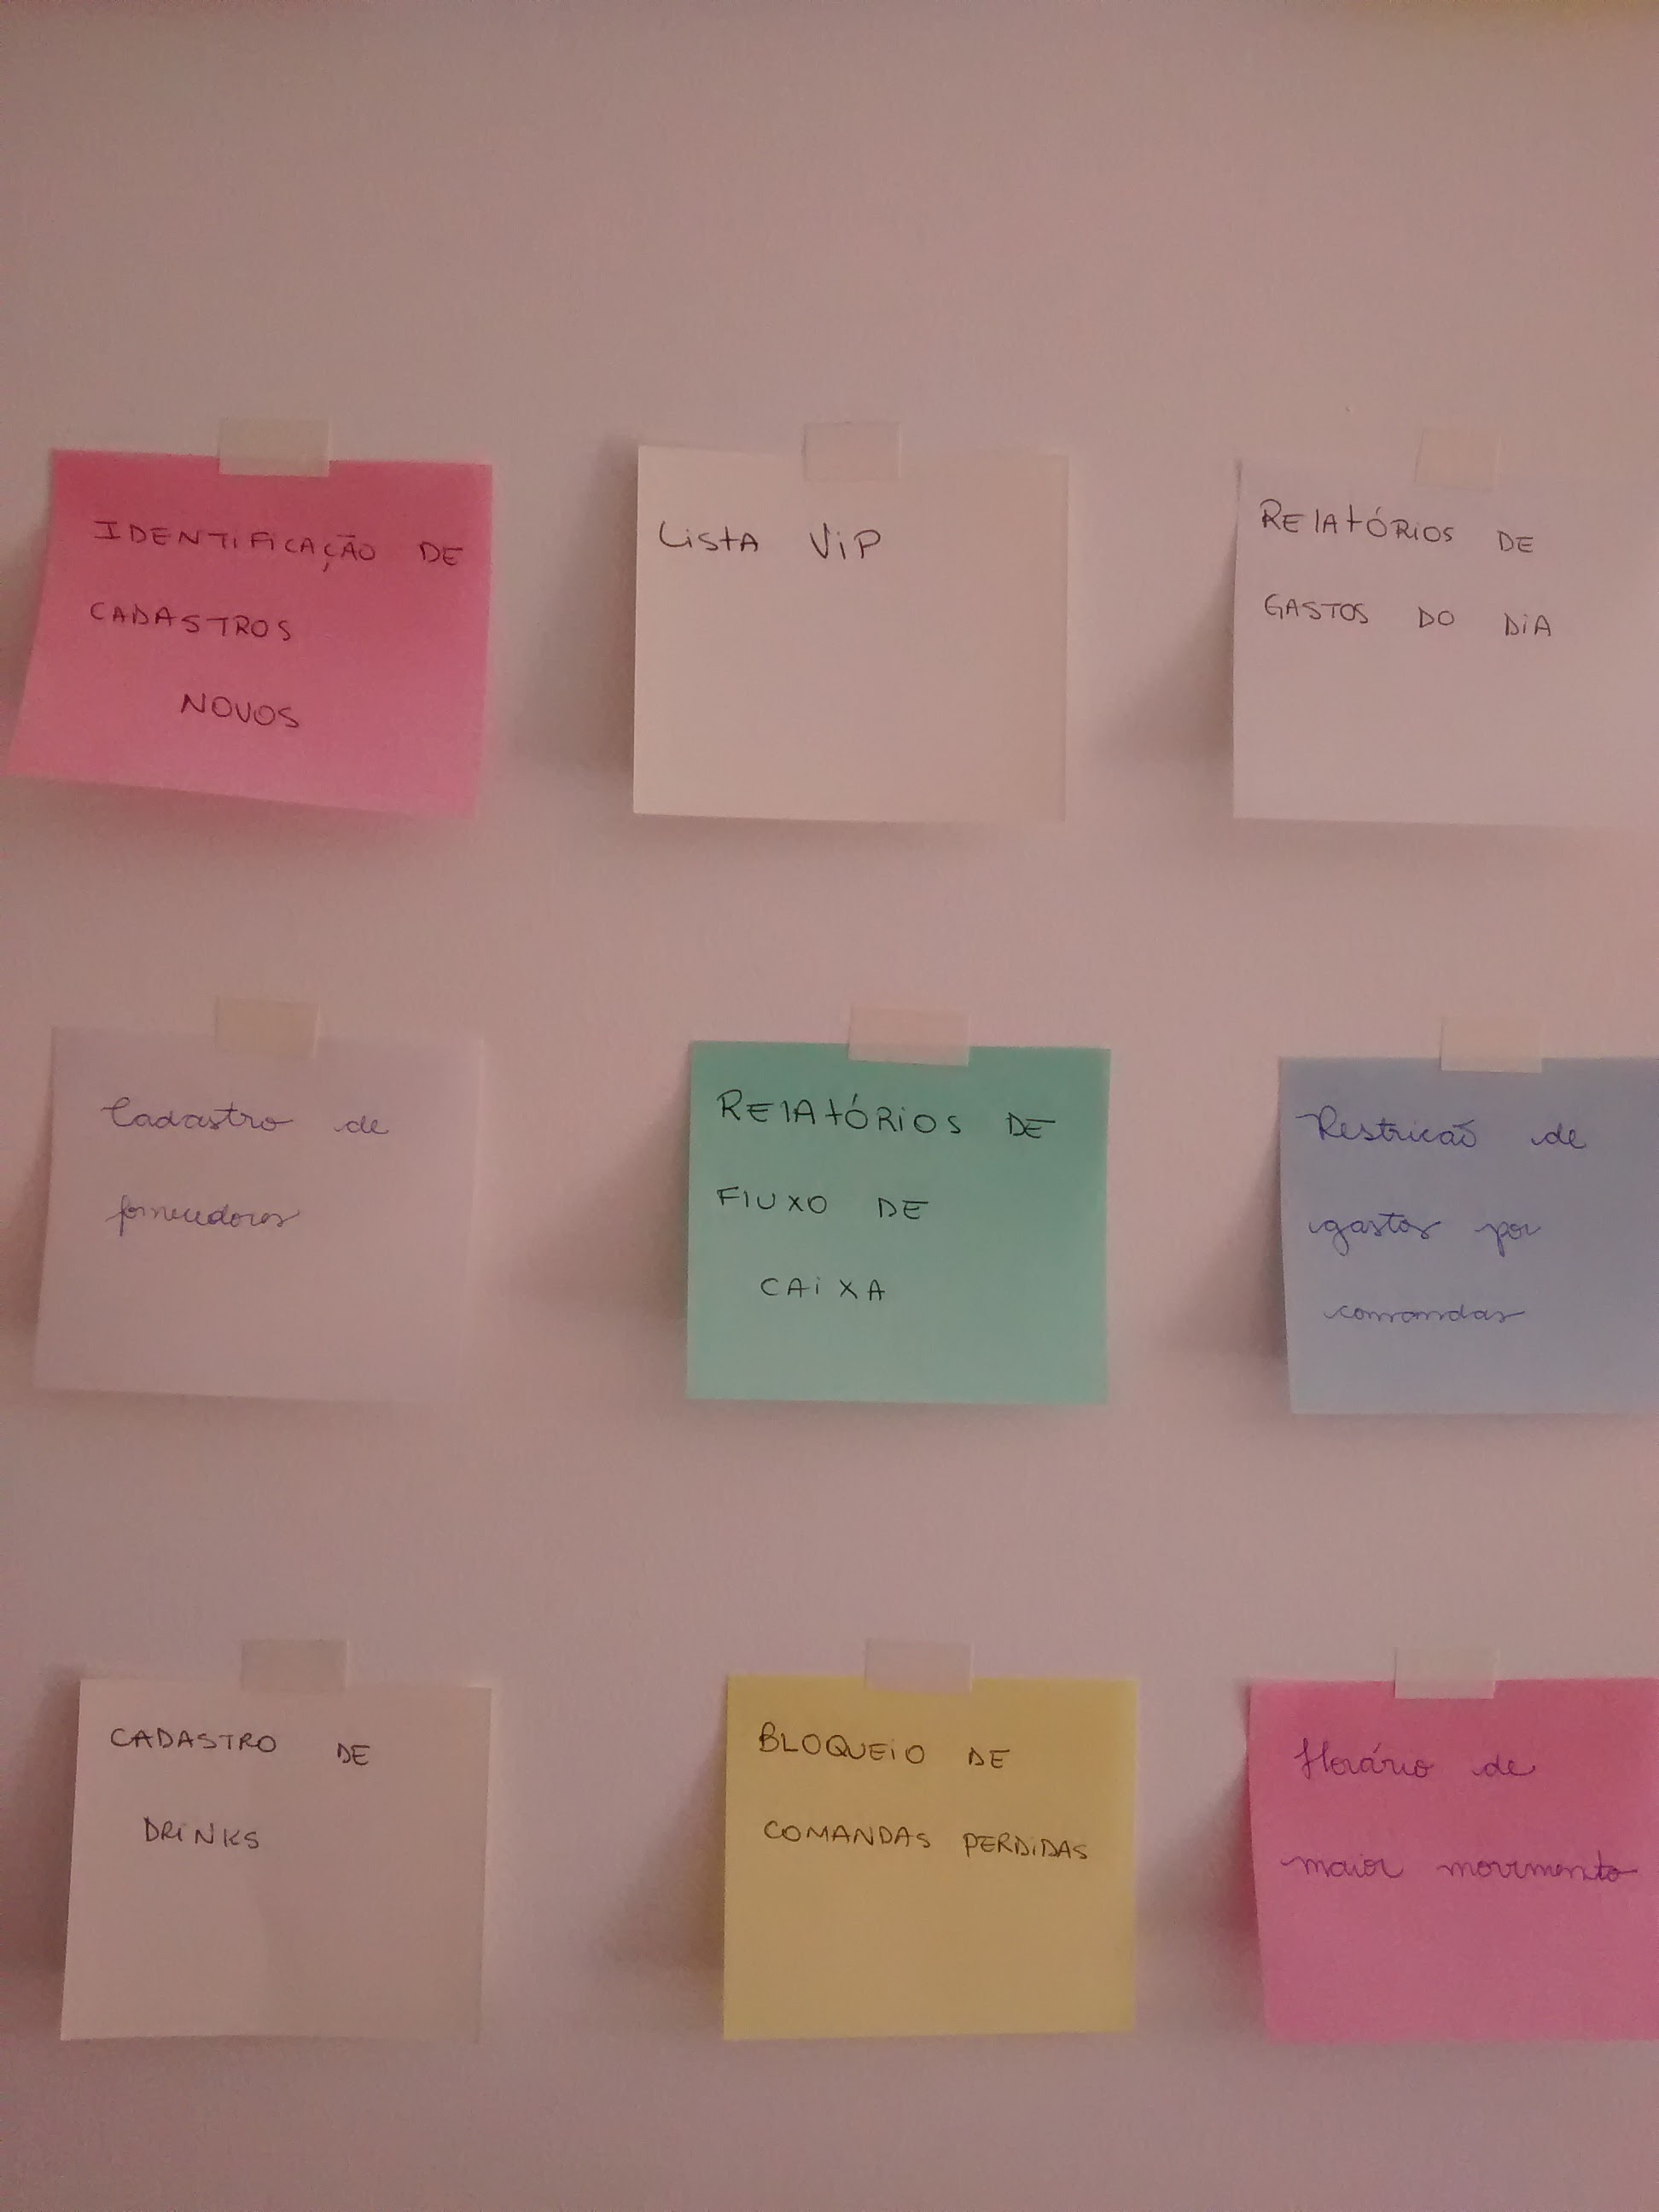 IDENTIFICAÇÃO DE
CADASTROS
NOVOS
LISTA VIP
RELATÓRIOS DE
GASTOS DO DIA
Cadastro de
fornecedores
RELATÓRIOS DE
FLUXO DE
CAIXA
Restricão de
gastos por
comandas
CADASTRO DE
DRINKS
BLOQUEIO DE
COMANDAS PERDIDAS
Horário de
maior movimento